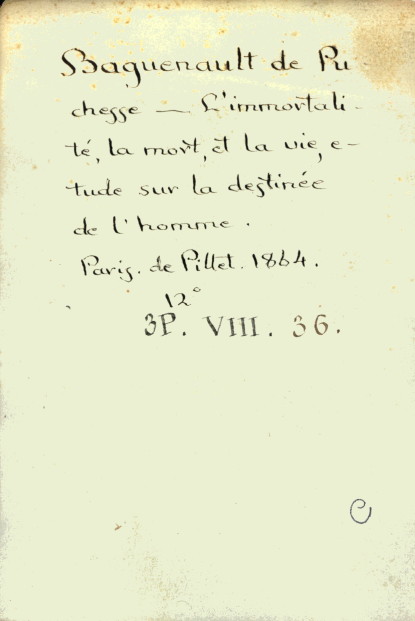 Baguenault de Pu-
chesse — L'immortali-
té, la mort, et la vie, e-
tude sur la destinée
de l'homme.
Paris. de Pillet. 1864.
12°
3P. VIII. 36.
C